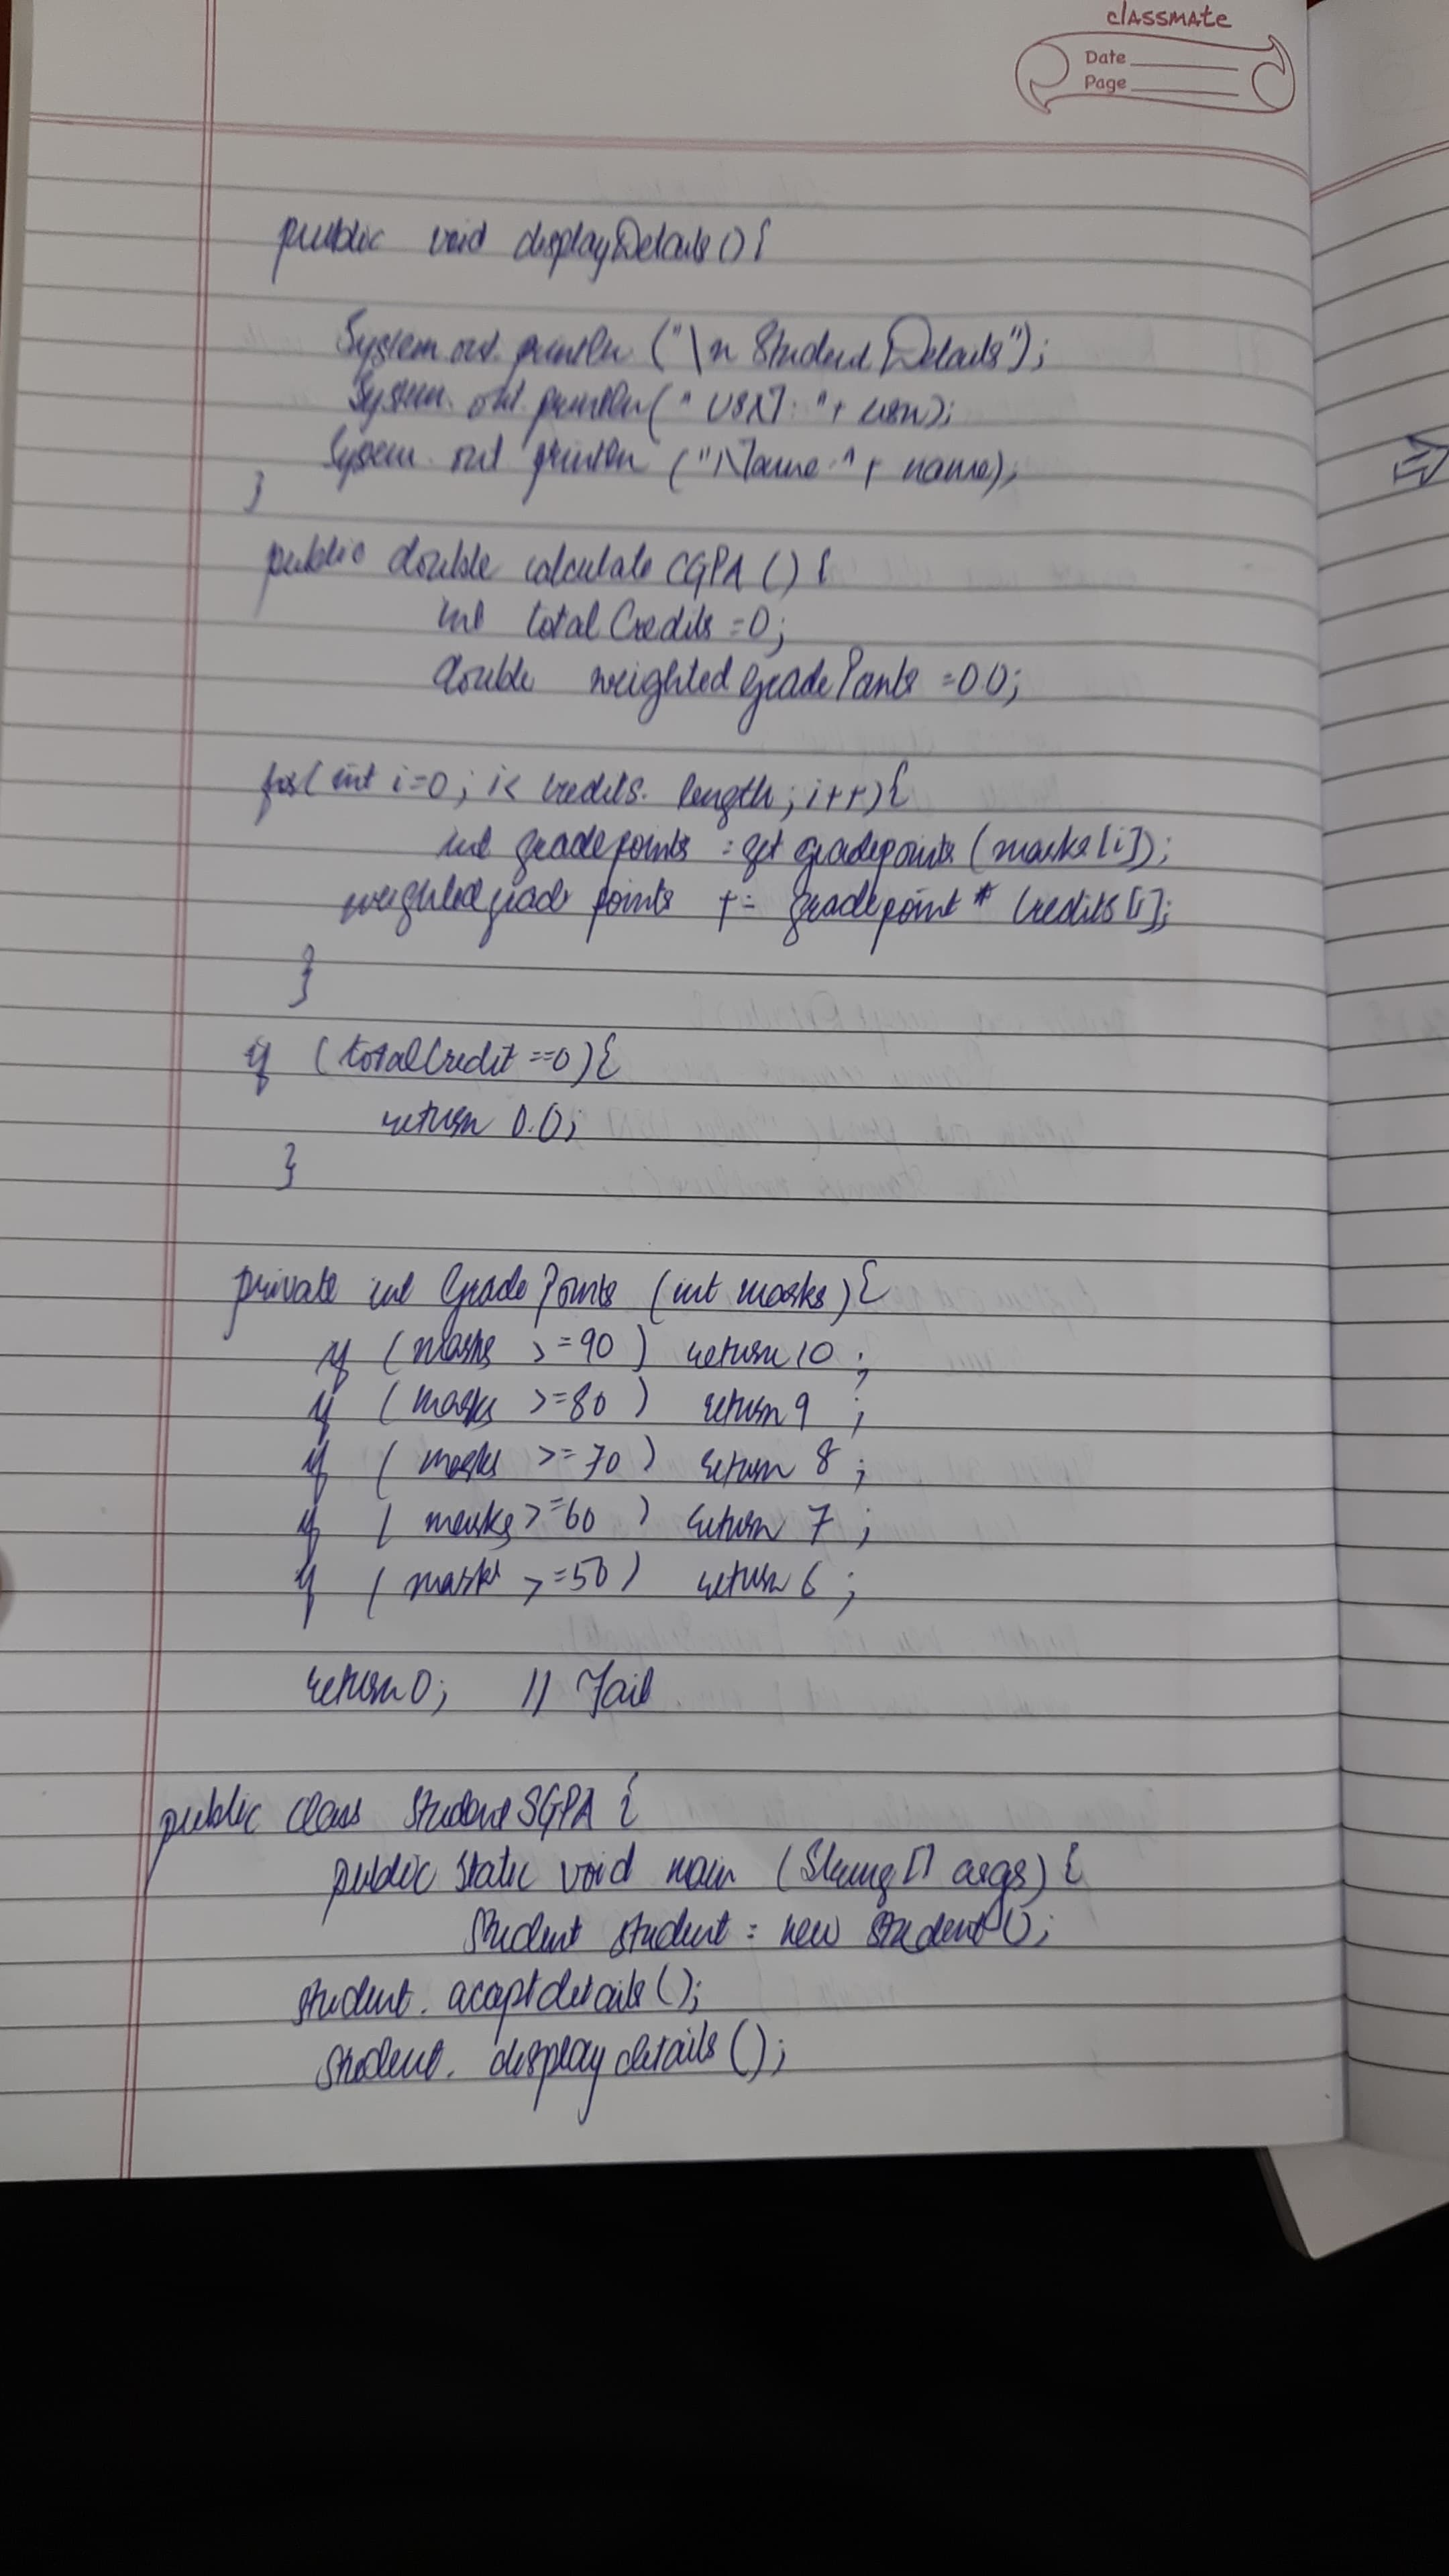 classmate
Date
Page
public void displayDetails(){
System.out.println ("\n Student Details");
System.out.println(" USN: "+ usn);
System.out println ("Name: "+ name);
}
public double calculate CGPA () {
int totalCredits =0;
double weightedgradePoints =0.0;
for( int i=0; i< credits. length; i++){
int gradepoints = get gradepoints (marks[i]);
weightedgrade points += gradepoint * Credits[i];
}
if (totalCredit ==0){
return 0.0;
}
private int GradePoints (int marks){
if (marks >=90) return 10 ;
if (marks >=80) return 9 ;
if (marks >=70) return 8 ;
if (marks >=60) return 7 ;
if (marks >=50) return 6 ;
return 0; // Fail
public class StudentSGPA {
public static void main (String[] args) {
Student student = new Student();
student. acceptdetails();
Student. displaydetails();